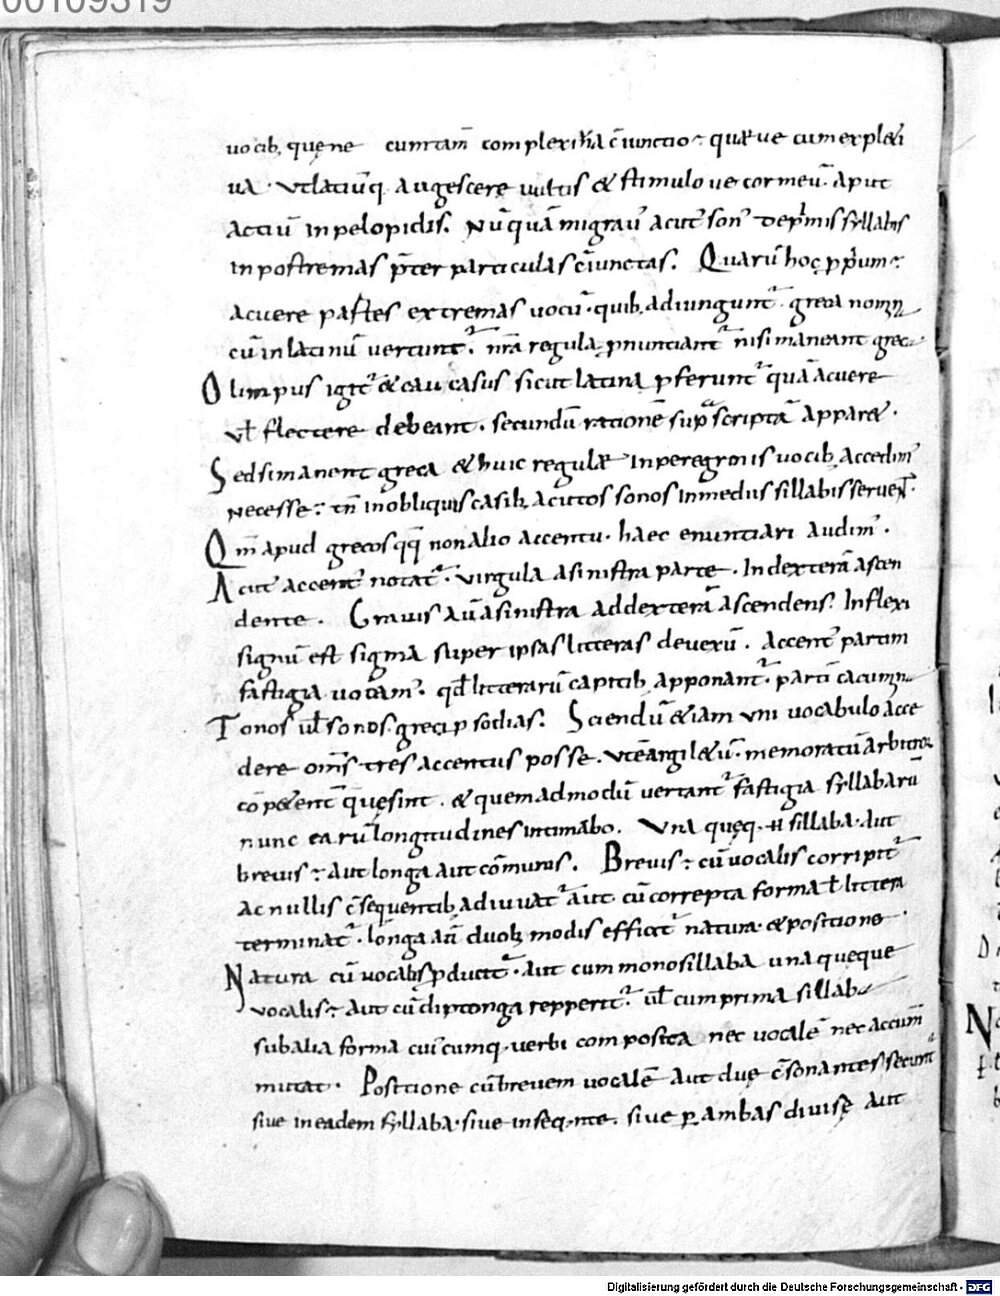 00109319
uocib, quęne cumtam̄ complexiua c̄iunctio quæue cum expleti
ua · utlatiūq· augescere uultus & stimulo ue cor meū· aput
actiū in pelopidis. Nūquā migrau̅ acut̅ son̅ de primis syllabis
in postremas p̄ter particulas c̄iunctas. Quarū hoc p̄priūm
acuere partes extremas uocū · quib, adiungunt̅ · greca nomin
cū in latinū uertunt̅ · nr̄a regula pnunciant̅ nisi maneant grec
Olimpus igit̅ & caucasus sicut latina pferunt̅ quā acuere
ul flectere debeant · secundū rationē sup̄scriptā appar& ·
Sed si manent greca & huic regulæ in peregrinis uocib, accedim̅
necesse: tn̄ in obliquis casib, acutos sonos in mediis sillabis seruent
Qm̄ apud grecos qq̄ non alio accentu · haec enuntiari audim̅ ·
Acut̅ accent̅ notat̅ · uirgula a sinistra parte · In dexterā ascen
dente · Grauis aū a sinistra ad dexterā ascendens. Inflexi
signū est sigma super ipsas litteras deuexū · Accent̅ partim
fastigia uocam̅ · qd̄ litterarū capitib, apponant̅ · parti cacumin
Tonos ul sonos · greci psodias. Sciendū &iam uni uocabulo acce
dere om̄s tres accentus posse · ut ē argil&ū · memoratū arbitror
cōp&ent̅ quęsint · & quemadmodū uertant̅ fastigia syllabarū
nunc earū longitudines intimabo. Una quęq· sillaba · aut
breuis aut longa aut cōmunis. Breuis cū uocalis corripit̅
ac nullis c̄sequentib, adiuuat̅ aut cū correpta forma littera
terminat̅ · longa aū duob, modis efficit̅ natura & positione ·
Natura cū uocalis pducit̅ · aut cum monosillaba una queque
uocalis aut cū diptonga repperit̅ ul cum prima sillab
sub alia forma cuicumq· uerbi composita nec uocalē nec accum
mittat · Positione cū breuem uocalē aut due c̄sonantes secunt̅
siue in eadem syllaba · siue in seqnte · siue p ambas diuisę aut
Digitalisierung gefördert durch die Deutsche Forschungsgemeinschaft - DFG